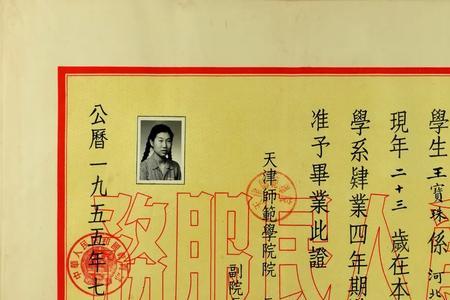 學生王寶珠係河北
現年二十三歲在本
學系肄業四年期
准予畢業此證
天津師範學院院
副院
公曆一九五五年七
務服民人